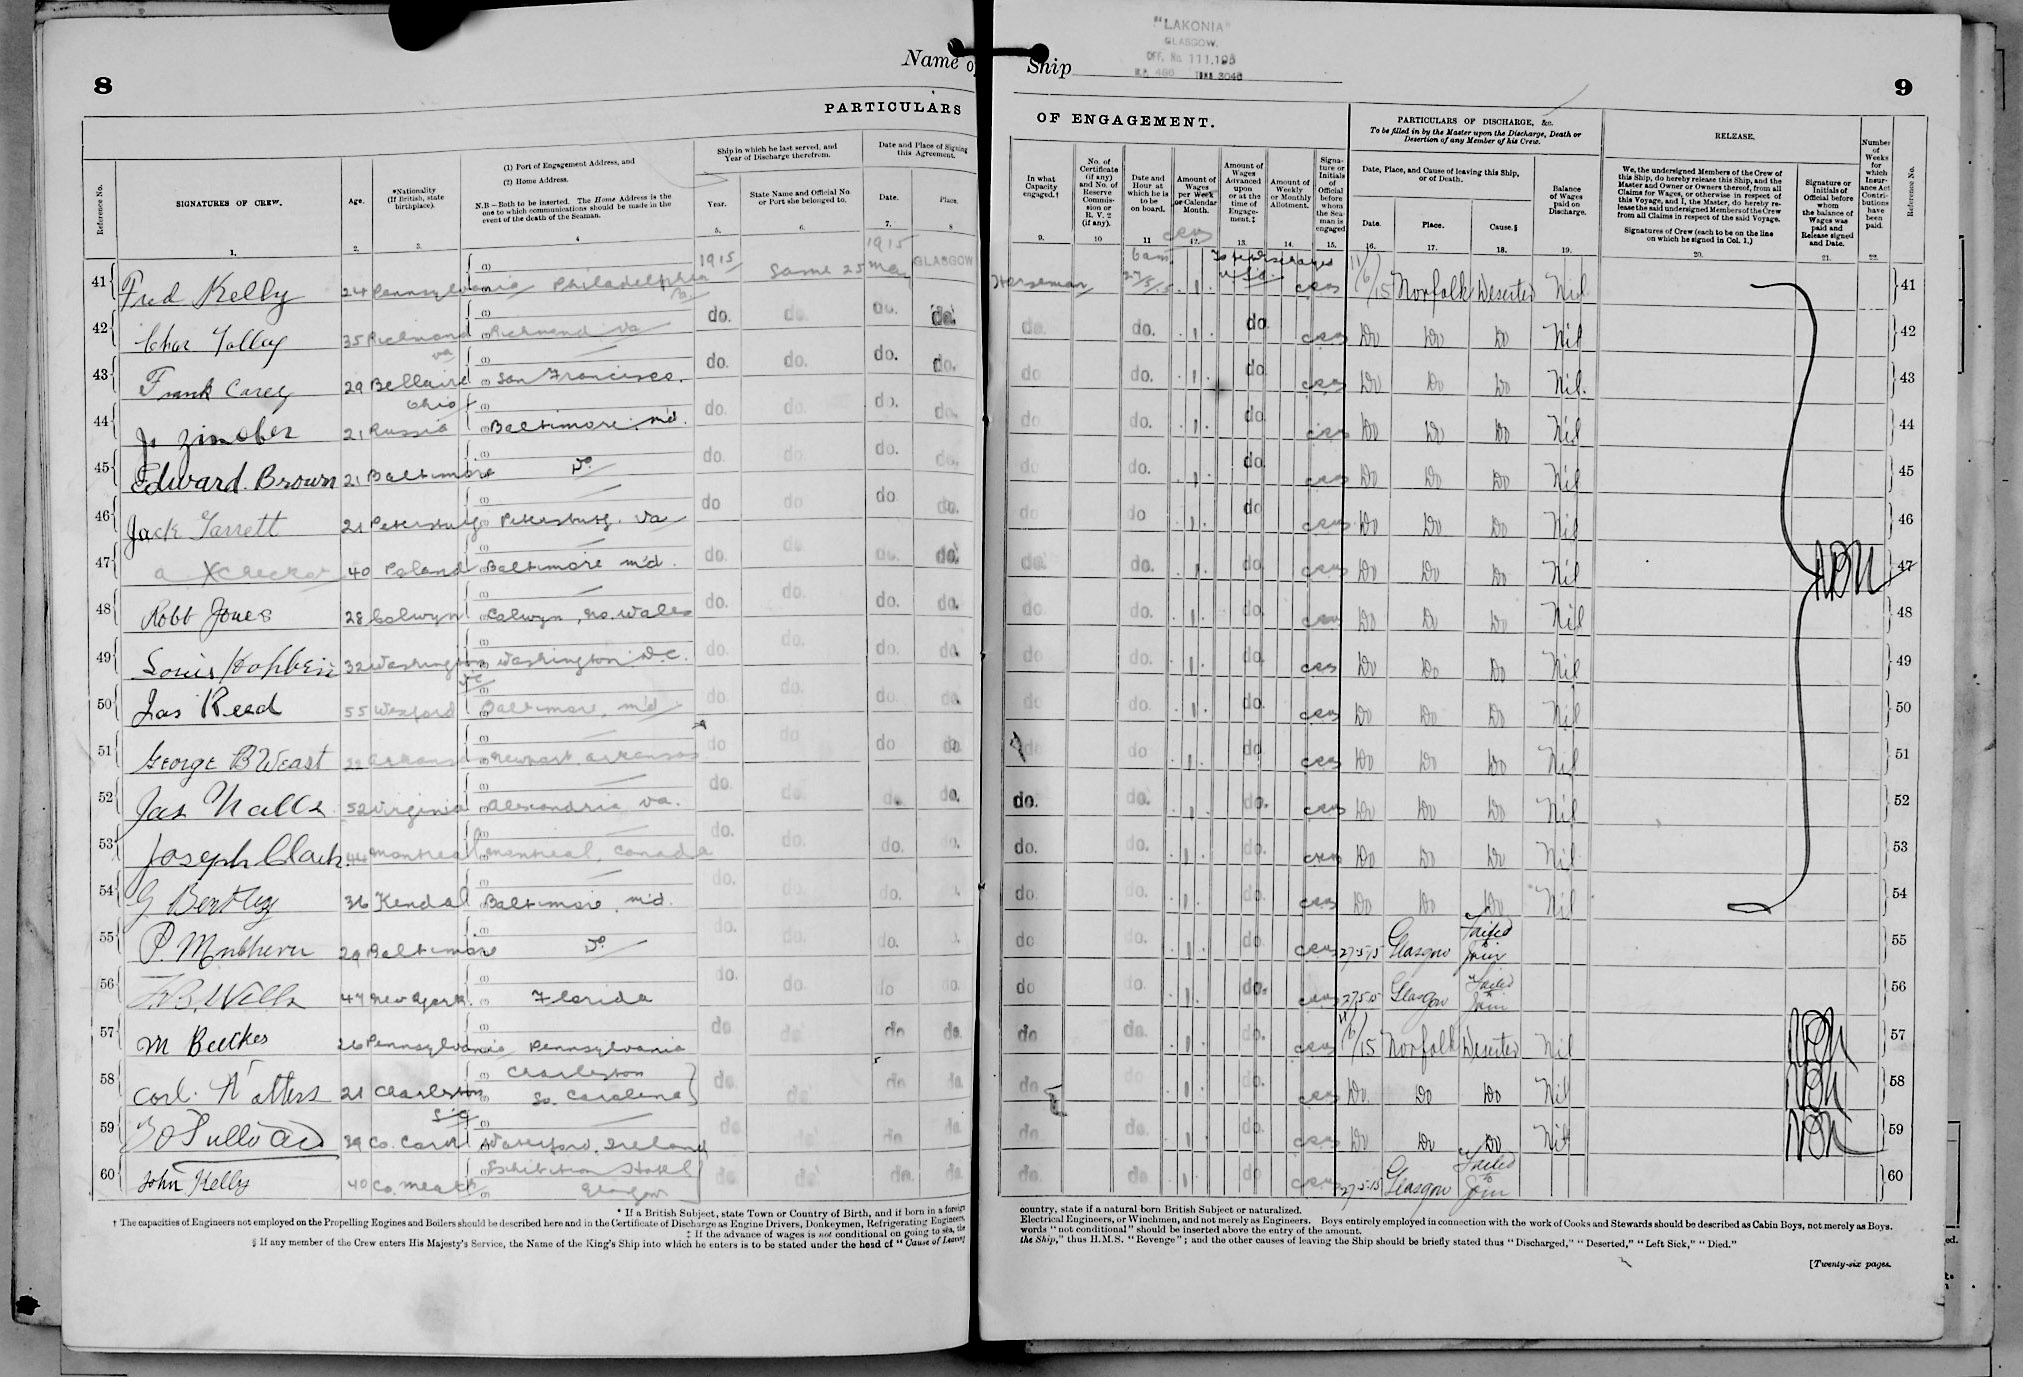 8
Name of
PARTICULARS
Reference No.
SIGNATURES OF CREW.
Age.
*Nationality (If British, state birthplace).
(1) Port of Engagement Address, and
(2) Home Address.
N.B—Both to be inserted. The Home Address is the one to which communications should be made in the event of the death of the Seaman.
Ship in which he last served, and Year of Discharge therefrom.
Year.
State Name and Official No. or Port she belonged to.
Date and Place of Signing this Agreement.
Date.
Place.
1. 2. 3. 4 5. 6. 7. 8
41 Fred Kelly 24 Pennsylvania Philadelphia Pa 1915 Same 1915 25 May GLASGOW
42 Chas Tolley 35 Richmond Va Richmond Va do. do. do. do.
43 Frank Carey 29 Bellaire Ohio San Francisco. do. do. do. do.
44 21 Russia Baltimore. Md. do. do. do. do.
45 Edward Brown 21 Baltimore Do do. do. do. do.
46 Jack Garrett 21 Petersburg Petersburg. Va do do do do.
47 40 Poland Baltimore Md. do. do. do. do.
48 Robt Jones 28 Colwyn Colwyn, No. Wales do. do. do. do.
49 Louis 32 Washington DC Washington D.C. do. do. do. do.
50 Jas Reed 55 Wexford Baltimore, Md do. do. do. do.
51 George B Weast 22 Arkansas Newport Arkansas do do do do
52 Jas Nalls 52 Virginia Alexandria Va. do. do. do. do.
53 Joseph Clark 44 Montreal Montreal, Canada do. do. do. do.
54 G Bentley 36 Kendal Baltimore, Md. do. do. do.
55 P. 29 Baltimore Do do. do. do.
56 47 New York Florida do. do. do do.
57 M 26 Pennsylvania Pennsylvania do do do do.
58 Carl Watters 21 Charleston S.C. Charleston So. Carolina do. do. do do.
59 39 Co. Cork Waterford, Ireland do do do do.
60 John Kelly 40 Co. Meath Exhibition Hotel Glasgow do. do. do. do.
* If a British Subject, state Town or Country of Birth, and if born in a foreign
† The capacities of Engineers not employed on the Propelling Engines and Boilers should be described here and in the Certificate of Discharge as Engine Drivers, Donkeymen, Refrigerating Engineers,
‡ If the advance of wages is not conditional on going to sea, the
§ If any member of the Crew enters His Majesty's Service, the Name of the King's Ship into which he enters is to be stated under the head of "Cause of Leaving
"LAKONIA"
GLASGOW.
OFF. No. 111,195
Ship
9
OF ENGAGEMENT.
In what Capacity engaged.†
No. of Certificate (if any) and No. of Reserve Commission or R. V. 2 (if any).
Date and Hour at which he is to be on board.
Amount of Wages per Week or Calendar Month.
Amount of Wages Advanced upon or at the time of Engagement.‡
Amount of Weekly or Monthly Allotment.
Signature or Initials of Official before whom the Seaman is engaged
PARTICULARS OF DISCHARGE, &c.
To be filled in by the Master upon the Discharge, Death or Desertion of any Member of his Crew.
Date, Place, and Cause of leaving this Ship, or of Death.
Date.
Place.
Cause.§
Balance of Wages paid on Discharge.
RELEASE.
We, the undersigned Members of the Crew of this Ship, do hereby release this Ship, and the Master and Owner or Owners thereof, from all Claims for Wages, or otherwise in respect of this Voyage, and I, the Master, do hereby release the said undersigned Members of the Crew from all Claims in respect of the said Voyage.
Signatures of Crew (each to be on the line on which he signed in Col. 1.)
Signature or Initials of Official before whom the balance of Wages was paid and Release signed and Date.
Number of Weeks for which Insurance Act Contributions have been paid.
Reference No.
9. 10 11 12. 13. 14. 15. 16. 17. 18. 19. 20. 21. 22.
Horseman 6 am 27/5/15 1 To be discharged in USA 11/6/15 Norfolk Deserted Nil 41
do. do. 1 do. Do Do Do Nil 42
do do. 1 do. Do Do Do Nil. 43
do. do. 1 do. Do Do Do Nil 44
do do. 1 do. Do Do Do Nil 45
do do 1 do Do Do Do Nil 46
do. do. 1 do Do Do Do Nil 47
do. do. 1 do. Do Do Do Nil 48
do do. 1 do. Do Do Do Nil 49
do do. 1 do. Do Do Do Nil 50
do do 1 do Do Do Do Nil 51
do. do. 1 do. Do Do Do Nil 52
do. do. 1 do. Do Do Do Nil 53
do do. 1 do. Do Do Do Nil 54
do do. 1 do. 27.5.15 Glasgow Failed to Join 55
do do. 1 do. 27.5.15 Glasgow Failed to Join 56
do do. 1 do. 11/6/15 Norfolk Deserted Nil 57
do do. 1 do. Do. Do Do Nil 58
do do. 1 do. Do Do Do Nil 59
do. do 1 do 27.5.15 Glasgow Failed to Join 60
country, state if a natural born British Subject or naturalized.
Electrical Engineers, or Winchmen, and not merely as Engineers. Boys entirely employed in connection with the work of Cooks and Stewards should be described as Cabin Boys, not merely as Boys.
words "not conditional" should be inserted above the entry of the amount.
the Ship," thus H.M.S. "Revenge"; and the other causes of leaving the Ship should be briefly stated thus "Discharged," "Deserted," "Left Sick," "Died."
[Twenty-six pages.